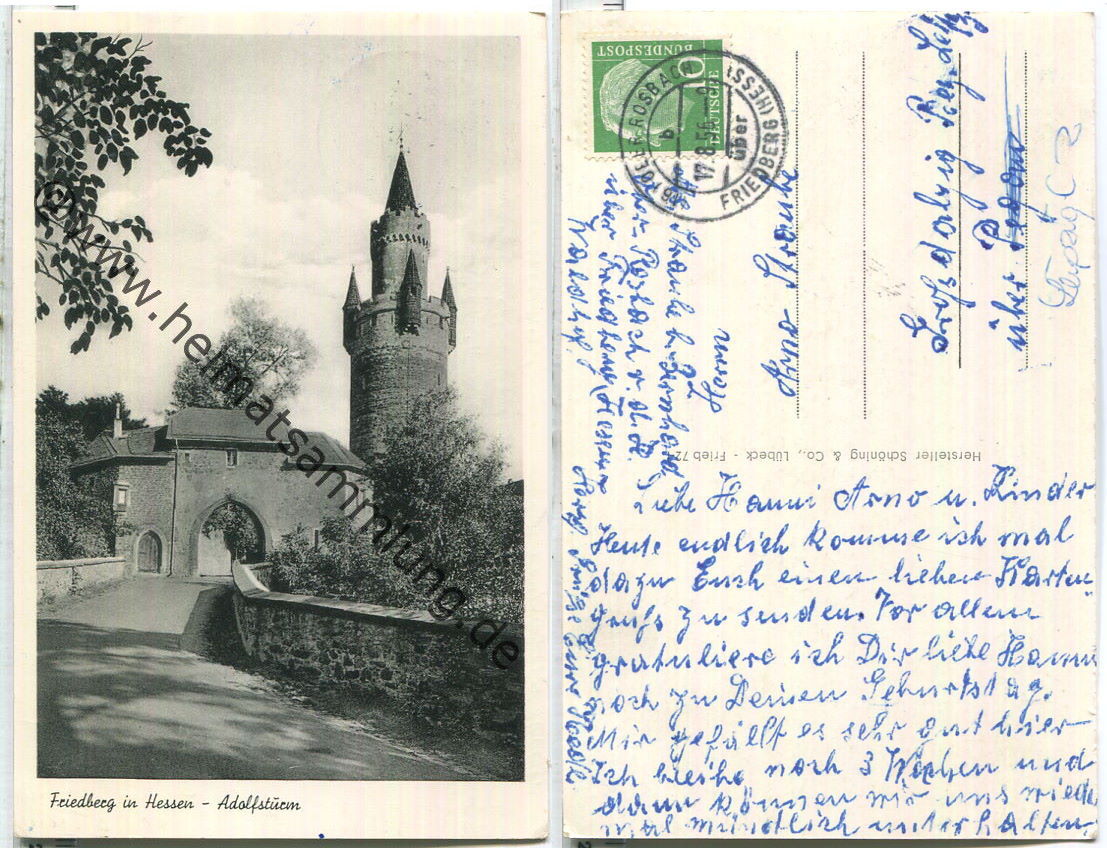 Friedberg in Hessen – Adolfsturm
©www.heimatsammlung.de
DEUTSCHE
BUNDESPOST
10
ROSBACH
über
FRIEDBERG (HESS)
b
17.8.56
Hersteller Schöning & Co., Lübeck - Frieb 72
Arno Straube
über
Leipzig C 2
Straube b. Arnhold
über Friedberg/Hessen
Liebe Hanni Arno u. Kinder
Heute endlich komme ich mal
dazu Euch einen lieben Karten
gruß zu senden. Vor allem
gratuliere ich Dir liebe Hanni
noch zu Deinen Geburtstag.
Mir gefällt es sehr gut hier
Ich bleibe noch 3 Wochen und
dann können wir uns wieder
mal mündlich unterhalten.